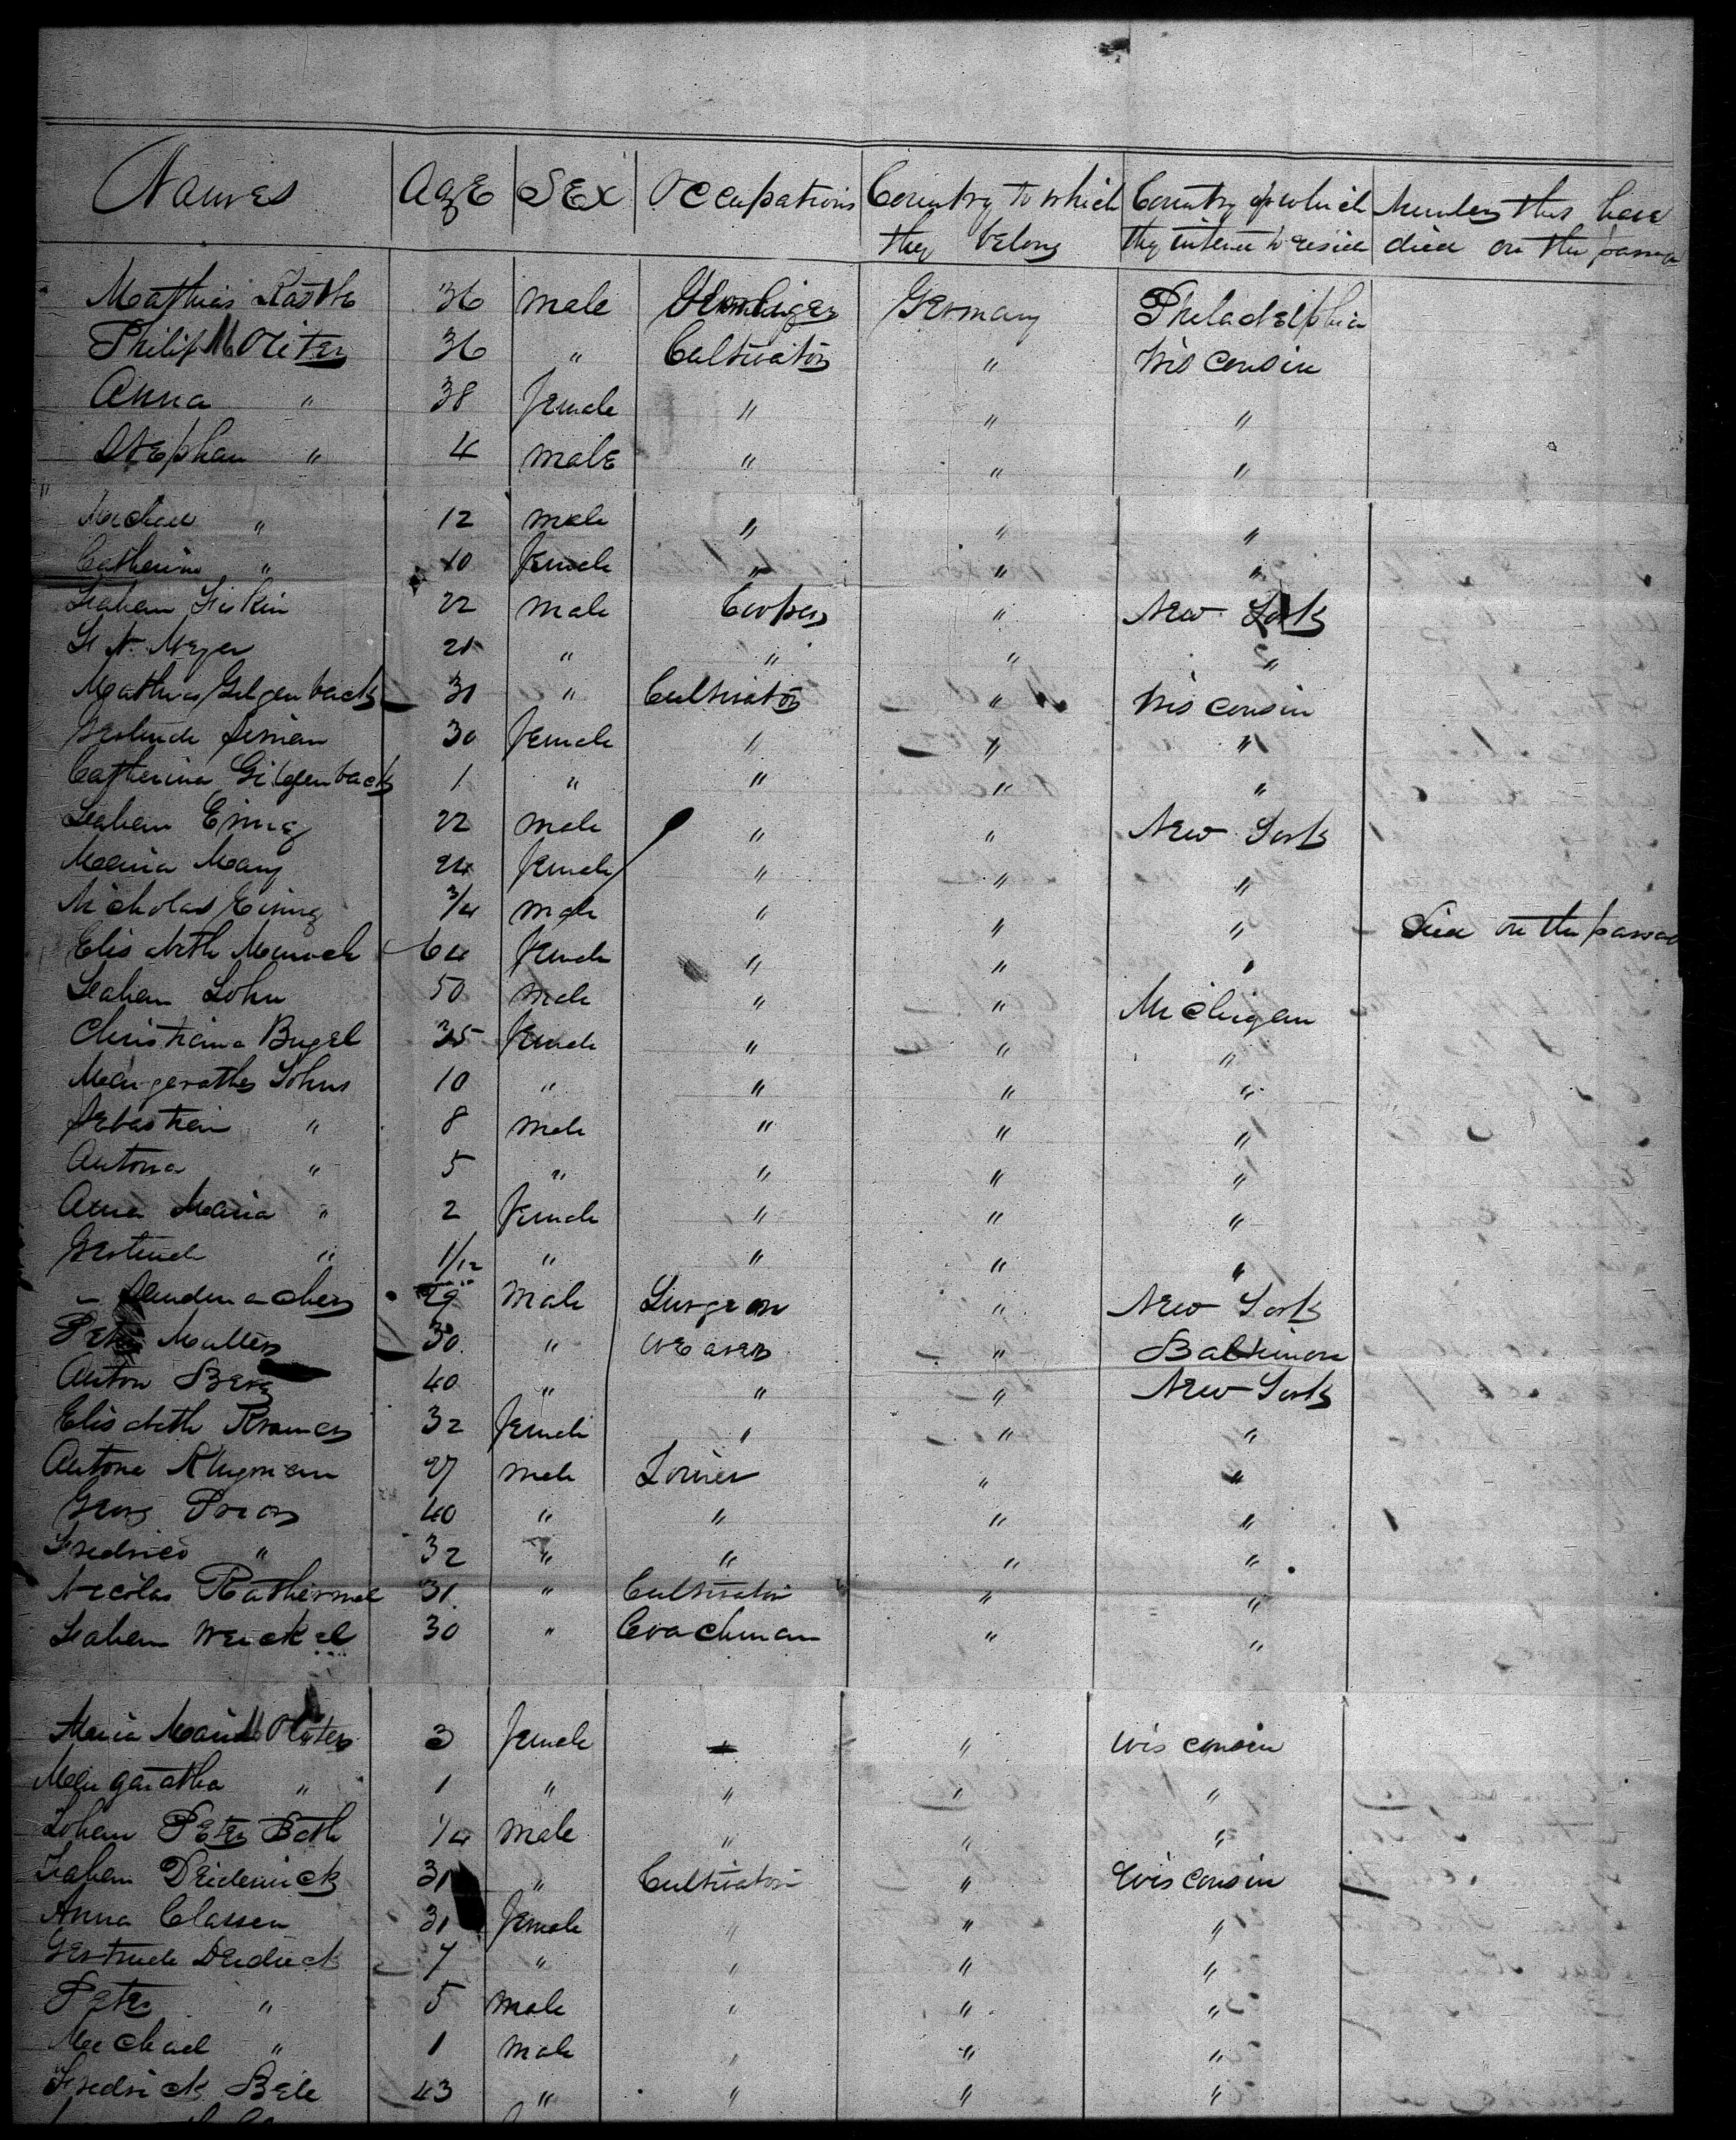 Names Age Sex Occupations Country to which they belong Country of which they intend to reside Number that have died on the passage
Mathias 36 male Germany Philadelphia
Philip Moliter 36 " Cultivator " Wisconsin
Anna " 38 female " " "
Stephan " 4 male " " "
Michael " 12 male " " "
Catherina " 10 female " " "
Johann 22 male Cooper " New York
Meyer 21 " " " "
Mathias Gilgenback 31 " Cultivator " Wisconsin
Gertrude Simian 30 female " " "
Catherina Gilgenback 1 " " " "
Johann 22 male " " New York
Maria Mary 24 female " " "
Nicholas 3/4 male " " " Died on the passage
Elisabeth 64 female " " "
Johann John 50 male " " Michigan
Christiana Bugel 35 female " " "
Margerathe Johns 10 " " " "
Sebastian " 8 male " " "
Antona " 5 " " " "
Anna Maria " 2 female " " "
Gertrude " 1/12 " " " "
29 male Surgeon " New York
Peter Mullers 30 " Weaver " Baltimore
Anton Berg 40 " " " New York
Elisabeth Kramer 32 female " " "
Antone Klugmann 27 male Joiner " "
Georg Prior 40 " " " "
Fredrico " 32 " " " "
Nicolas Rathermel 31 " Cultivator " "
Johann Weickel 30 " Coachman " "
Maria Maria Moliter 3 female " Wisconsin
Margaratha " 1 " " " "
Johann Peter Both 1/4 male " " "
Johann Deiderick 31 " Cultivator " Wisconsin
Anna Classen 31 female " " "
Gertrude Deidrick 7 " " " "
Peter " 5 male " " "
Michael " 1 male " " "
Fredrick Bele 43 " " " "